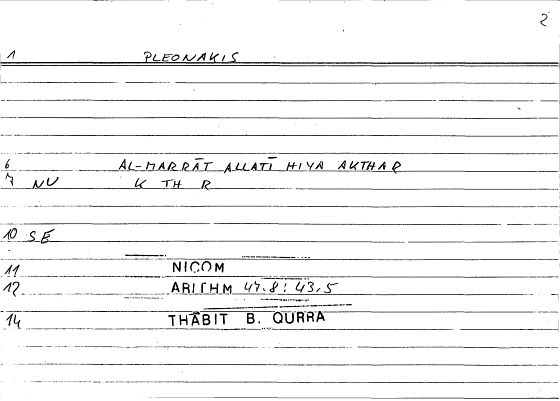 2
1 PLEONAKIS
6 AL-MARRĀT ALLATĪ HIYA AKTHAR
7 NU K TH R
10 SE
11 NICOM
12 ARITHM 47.8: 43,5
14 THĀBIT B. QURRA